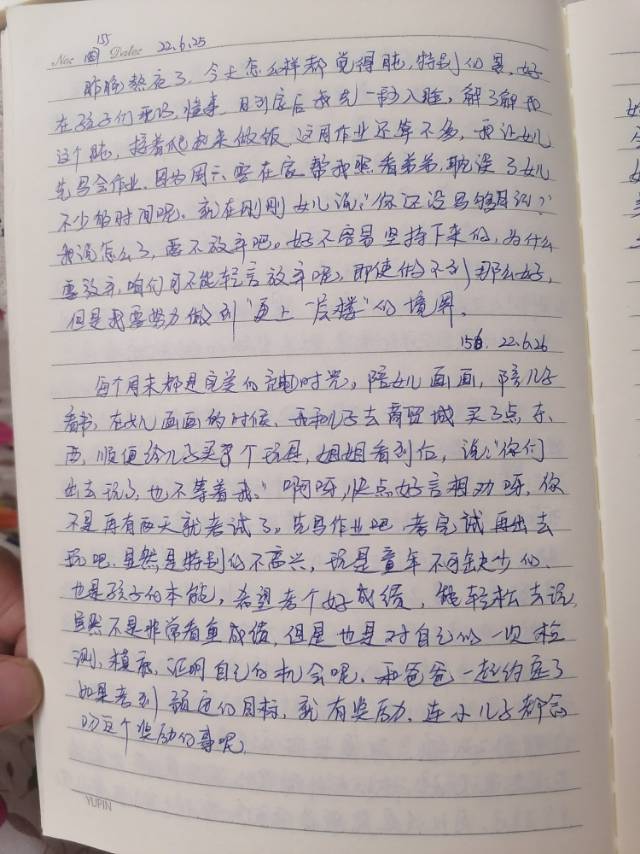 155
No: 周 Date: 22.6.25
昨晚熬夜了,今天怎么样都觉得盹,特别的累,好
在孩子们乖巧,懂事,回到家后我先一秒入睡,解了解我
这个盹,接着爬起来做饭,这周作业还算不多,我让女儿
先写会作业,因为周六要在家帮我照看弟弟,耽误了女儿
不少的时间呢,就在刚刚女儿说:"你还没写够日记?"
我说怎么了,要不放弃吧。好不容易坚持下来的,为什么
要放弃,咱们可不能轻言放弃呢,即使做不到那么好,
但是我要努力做到"更上一层楼"的境界。
156. 22.6.26
每个周末都是完美的充电时光,陪女儿画画,陪儿子
看书,在女儿画画的时候,我和儿子去商贸城买了点东
西,顺便给儿子买了个玩具,姐姐看到后,说:"你们
出去玩了,也不等着我。"啊呀,快点好言相劝呀,你
不是再有两天就考试了,先写作业吧,考完试再出去
玩吧,显然是特别的不高兴,玩是童年不可缺少的,
也是孩子的本能,希望考个好成绩,能轻松去玩,
虽然不是非常看重成绩,但是也是对自己的一次检
测,模底,证明自己的机会呢,和爸爸一起约定了
如果考到预定的目标,就有奖励,连小儿子都会
叨这个奖励的事呢
YUPIN